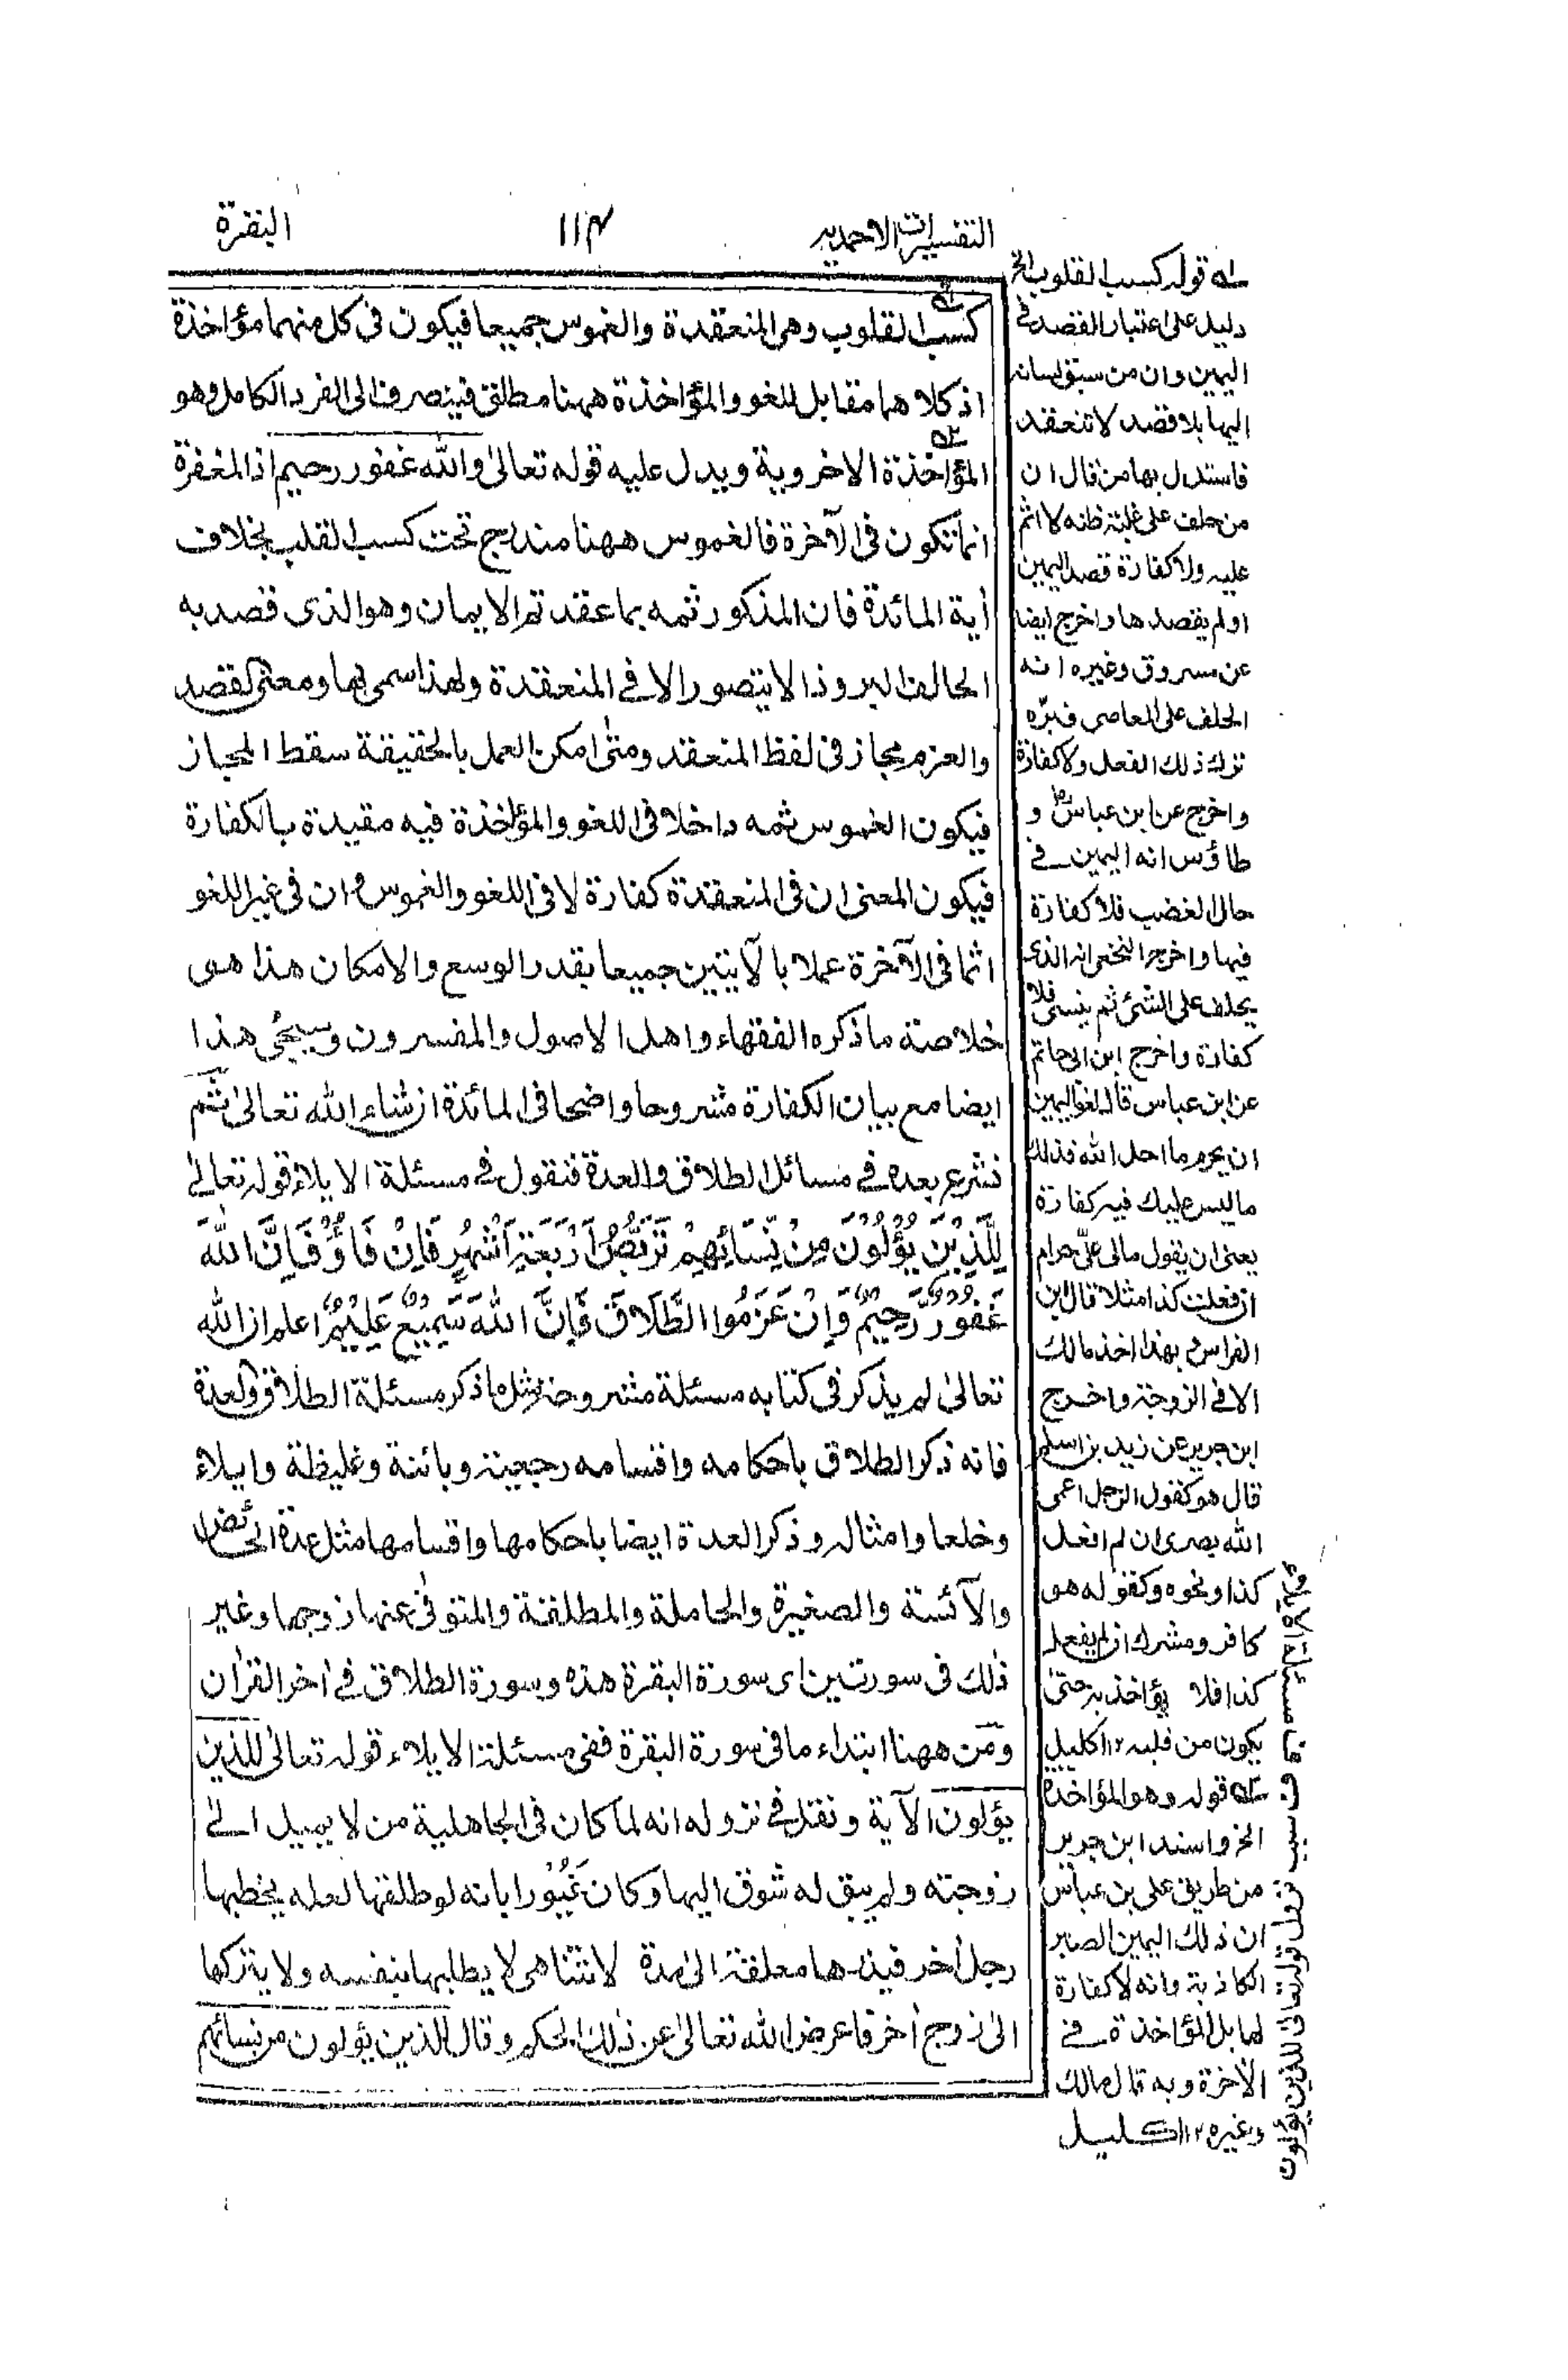 التفسيرات الاحمدية
١١٤
البقرة
كسب القلوب وهى المنعقدة والغموس جميعا فيكون فى كل منهما مؤاخذة
اذ كلاهما مقابل للغو والمؤاخذة ههنا مطلق فينصرف الى الفرد الكامل وهو
المؤاخذة الاخروية ويدل عليه قوله تعالىٰ والله غفور رحيم اذ المغفرة
انما تكون فى الآخرة فالغموس ههنا مندرج تحت كسب القلب بخلاف
أية المائدة فان المذكور ثمه بما عقدتم الايمان وهو الذى قصد به
الحالف البر وذا لا يتصور الا فے المنعقدة ولهذا سمى بها ومعنى القصد
والعزم مجاز فى لفظ المنعقد ومتىٰ امكن العمل بالحقيقة سقط المجاز
فيكون الغموس ثمه داخلا فى اللغو والمؤاخذة فيه مقيدة بالكفارة
فيكون المعنى ان فى المنعقدة كفارة لا فى اللغو والغموس وان فى غير اللغو
اثما فى الآخرة عملا بالآيتين جميعا بقدر الوسع والامكان هذا هى
خلاصة ما ذكره الفقهاء واهل الاصول والمفسرون وسيجئ هذا
ايضا مع بيان الكفارة مشروحا واضحا فى المائدة ان شاء الله تعالىٰ ثم
نشرع بعده فے مسائل الطلاق والعدة فنقول فے مسئلة الايلاء قوله تعالےٰ
لِلَّذِيْنَ يُؤْلُوْنَ مِنْ نِّسَائِهِمْ تَرَبُّصُ اَرْبَعَةِ اَشْهُرٍ فَاِنْ فَاؤُ فَاِنَّ اللّٰهَ
غَفُوْرٌ رَّحِيْمٌ وَاِنْ عَزَمُوا الطَّلَاقَ فَاِنَّ اللّٰهَ سَمِيْعٌ عَلِيْمٌ اعلم ان الله
تعالىٰ لم يذكر فى كتابه مسئلة مشروحة مثل ما ذكر مسئلة الطلاق والعدة
فانه ذكر الطلاق باحكامه واقسامه رجعية وبائنة وغليظة وايلاء
وخلعا وامثاله وذكر العدة ايضا باحكامها واقسامها مثل عدة الحائض
والآئسة والصغيرة والحاملة والمطلقة والمتوفىٰ عنها زوجها وغير
ذٰلك فى سورتين اى سورة البقرة هذه وسورة الطلاق فے اٰخر القراٰن
ومن ههنا ابتداء ما فى سورة البقرة ففى مسئلة الايلاء قوله تعالىٰ للذين
يؤلون الآية ونقل فے نزوله انه لما كان فى الجاهلية من لا يميل الےٰ
زوجته ولم يبق له شوق اليها وكان غَيُوْرا بانه لو طلقها لعله يخطبها
رجل اٰخر فيذرها معلقة الىٰ مدة لا تتناهى لا يطلبها بنفسه ولا يتركها
الىٰ زوج اٰخر فاعرض الله تعالىٰ عن ذٰلك الحكم وقال للذين يؤلون من نسائهم
له قوله كسب القلوب الخ
دليل على اعتبار القصد فے
اليمين وان من سبق لسانه
اليها بلا قصد لا تنعقد
فاستدل بها من قال ان
من حلف على غلبة ظنه لا اثم
عليه ولا كفارة قصد اليمين
او لم يقصدها واخرج ايضا
عن مسروق وغيره انه
الحلف على المعاصى فبرّه
ترك ذلك الفعل ولا كفارة
واخرج عن ابن عباسؓ و
طاؤس انه اليمين فے
حال الغضب فلا كفارة
فيها واخرج النخعى انه الذى
يحلف على الشئ ثم ينسى فلا
كفارة واخرج ابن ابى حاتم
عن ابن عباس قال لغو اليمين
ان يحرم ما احل الله فذلك
ما ليس عليك فيه كفارة
يعنى ان يقول مالى علىّ حرام
ان فعلت كذا مثلا قال ابن
الفراس وبهذا اخذ مالك
الا فى الزوجة واخرج
ابن جرير عن زيد بن اسلم
قال هو كقول الرجل اعمى
الله بصرى ان لم افعل
كذا ونحوه وكقوله هو
كافر ومشرك ان لم يفعل
كذا فلا يؤاخذ به حتىٰ
يكون من قلبه ١٢ اكليل
٢ه قوله وهو المؤاخذة
الخ واسند ابن جرير
من طريق على بن عباس
ان ذلك اليمين الصبر
الكاذبة وانه لا كفارة
لها بل المؤاخذة فے
الآخرة وبه قال مالك
وغيره ١٢ اكليل
سبب نزول قوله تعالىٰ للذين يؤلون